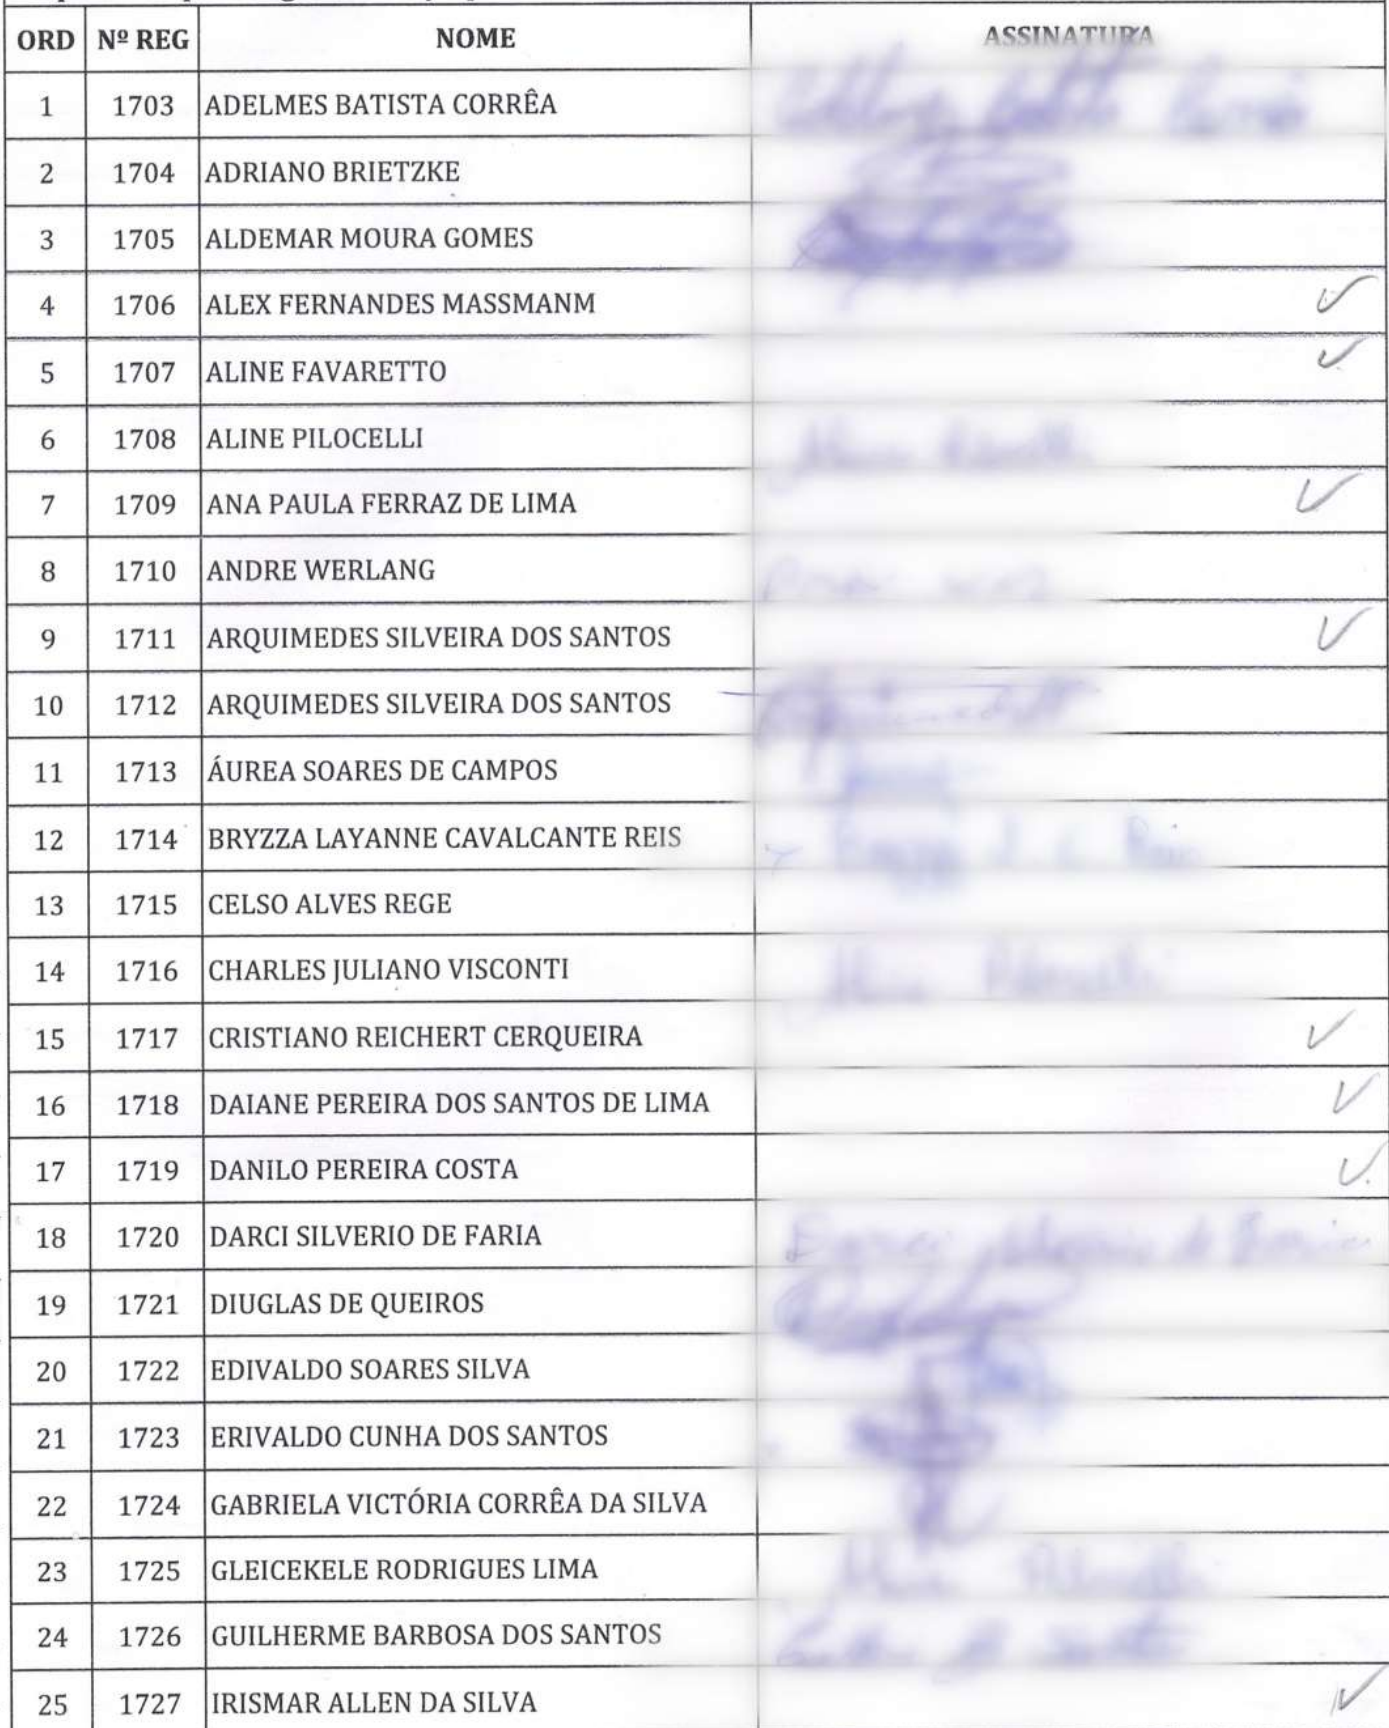 ORD Nº REG NOME ASSINATURA
1 1703 ADELMES BATISTA CORRÊA
2 1704 ADRIANO BRIETZKE
3 1705 ALDEMAR MOURA GOMES
4 1706 ALEX FERNANDES MASSMANM
5 1707 ALINE FAVARETTO
6 1708 ALINE PILOCELLI
7 1709 ANA PAULA FERRAZ DE LIMA
8 1710 ANDRE WERLANG
9 1711 ARQUIMEDES SILVEIRA DOS SANTOS
10 1712 ARQUIMEDES SILVEIRA DOS SANTOS
11 1713 ÁUREA SOARES DE CAMPOS
12 1714 BRYZZA LAYANNE CAVALCANTE REIS
13 1715 CELSO ALVES REGE
14 1716 CHARLES JULIANO VISCONTI
15 1717 CRISTIANO REICHERT CERQUEIRA
16 1718 DAIANE PEREIRA DOS SANTOS DE LIMA
17 1719 DANILO PEREIRA COSTA
18 1720 DARCI SILVERIO DE FARIA
19 1721 DIUGLAS DE QUEIROS
20 1722 EDIVALDO SOARES SILVA
21 1723 ERIVALDO CUNHA DOS SANTOS
22 1724 GABRIELA VICTÓRIA CORRÊA DA SILVA
23 1725 GLEICEKELE RODRIGUES LIMA
24 1726 GUILHERME BARBOSA DOS SANTOS
25 1727 IRISMAR ALLEN DA SILVA